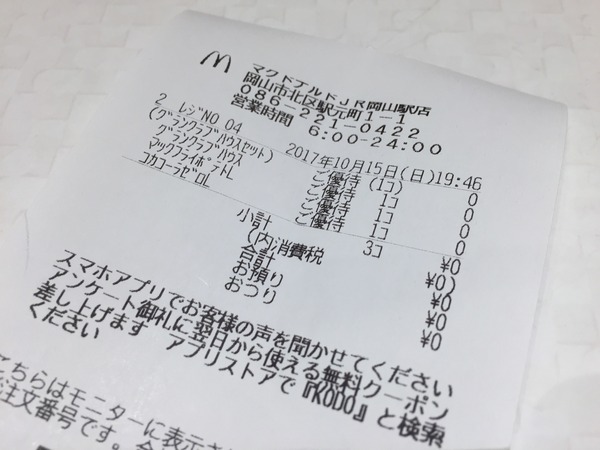 マクドナルドJR岡山駅店
岡山市北区駅元町1-1
086-221-0422
営業時間 6:00-24:00
2 レジNO 04 2017年10月15日(日)19:46
(グランクラブハウスセット) ご優待 (1コ) 0
グランクラブハウス ご優待 1コ 0
マックフライポテトL ご優待 1コ 0
コカコーラゼロL ご優待 1コ 0
小計 3コ ¥0
(内消費税 ¥0)
合計 ¥0
お預り ¥0
おつり ¥0
スマホアプリでお客様の声を聞かせてください
アンケート御礼に翌日から使える無料クーポン
差し上げます アプリストアで『KODO』と検索
ください
こちらはモニターに表示さ
注文番号です。